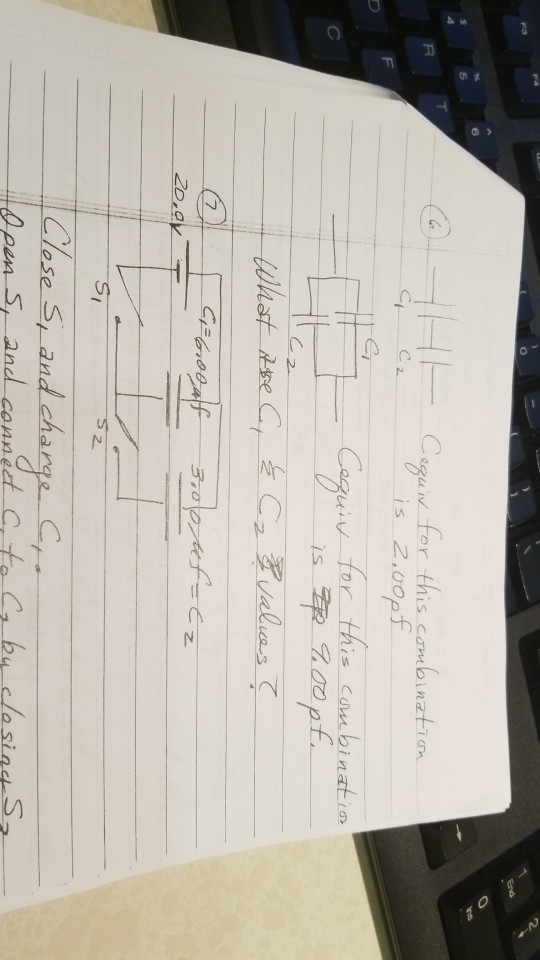 (6) C1 C2 Cequiv for this combination
is 2.00pf
C1
C2
Cequiv for this combinatio
is 9.00 pf.
What are C1 & C2 values?
(7)
20.0V C1=6.00μf 3.00μf=C2
S1 S2
Close S1 and charge C1.
Open S1 and connect C1 to C2 by closing S2